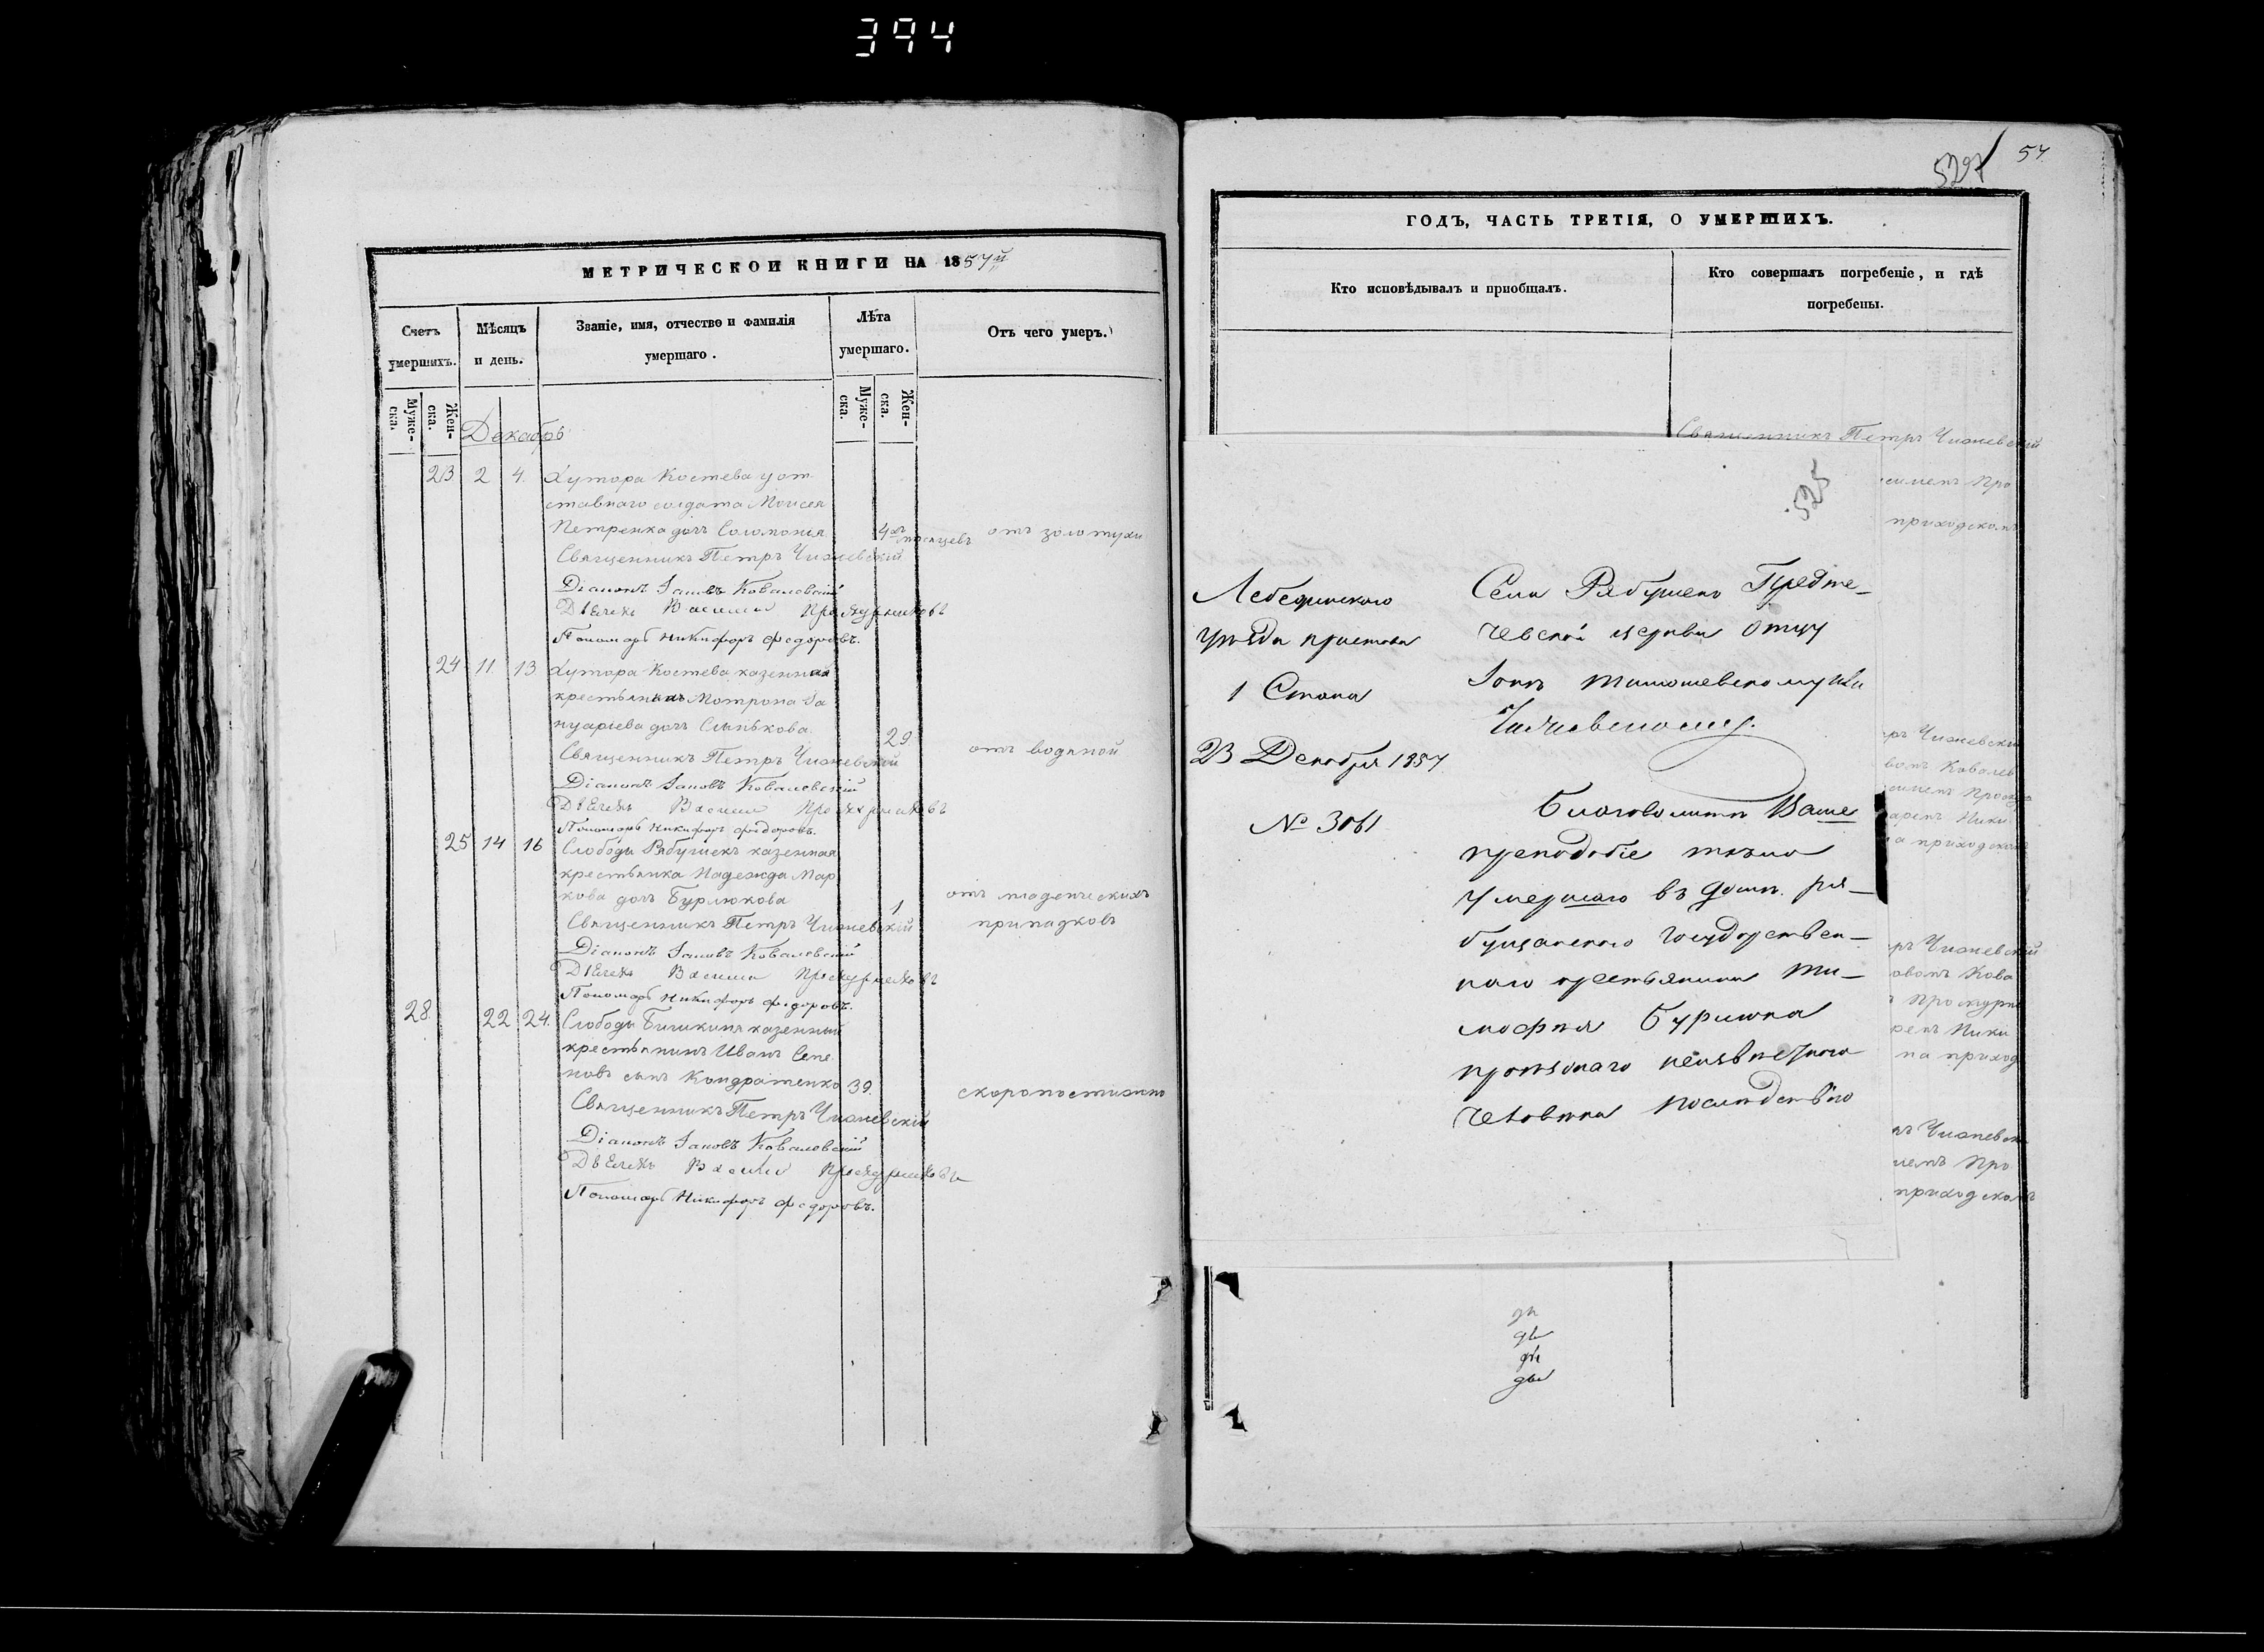 394
МЕТРИЧЕСКОЙ КНИГИ НА 1857й
Счетъ умершихъ.
Муже-ска.
Жен-ска.
Мѣсяцъ и день.
Званіе, имя, отчество и фамилія умершаго.
Лѣта умершаго.
Муже-ска.
Жен-ска.
Отъ чего умеръ.
Декабрь
23 2 4. Хутора Костева у от
ставнаго солдата Моисея
Петренка дочь Соломонія 4хъ месяцевъ отъ золотухи
Священникъ Петръ Чижевскій
Діаконъ Іаковъ Ковалевскій
Дьячекъ Василій Проскурниковъ
Пономарь Никифоръ Федоровъ.
24 11. 13. Хутора Костева казенная
крестьянка Мотрона Іа
нуаріева дочь 29.
отъ водяной
Священникъ Петръ Чижевскій
Діаконъ Іаковъ Ковалевскій
Дьячекъ Василій Проскурниковъ
Пономарь Никифоръ Федоровъ.
25 14 16 Слободы Рябушекъ казенная
крестьянка Надежда Мар
кова дочь Бурлюкова 1 отъ младенческихъ
припадковъ
Священникъ Петръ Чижевскій
Діаконъ Іаковъ Ковалевскій
Дьячекъ Василій Проскурниковъ
Пономарь Никифоръ Федоровъ.
28. 22 24. Слободы Бишкиня казенный
крестьянинъ Иванъ Семе
новъ сынъ Кондратенко 39. скоропостижно
Священникъ Петръ Чижевскій
Діаконъ Іаковъ Ковалевскій
Дьячекъ Василій Проскурниковъ
Пономарь Никифоръ Федоровъ.
527 57.
ГОДЪ, ЧАСТЬ ТРЕТІЯ, О УМЕРШИХЪ.
Кто исповѣдывалъ и пріобщалъ.
Кто совершалъ погребеніе, и гдѣ
погребены.
Священникъ Петръ Чижевскій
525
Лебединского
уѣзда пристава
1 Стана
23 Декабря 1857
№ 3061
Села Рябушекъ Предте-
чевской церкви отцу
Іоанну Тимошевскому или
Чижевскому.
Благоволитъ Ваше
преподобіе тѣло
умершаго въ домѣ ря-
бушанского государствен-
наго крестьянина Ти-
мофея Бурлюка
проѣзжаго неизвѣстного
человѣка
приходскомъ
Чижевскій
Чижевскій
Кова
Ники
на приход
Чижевск
Про
приходскомъ